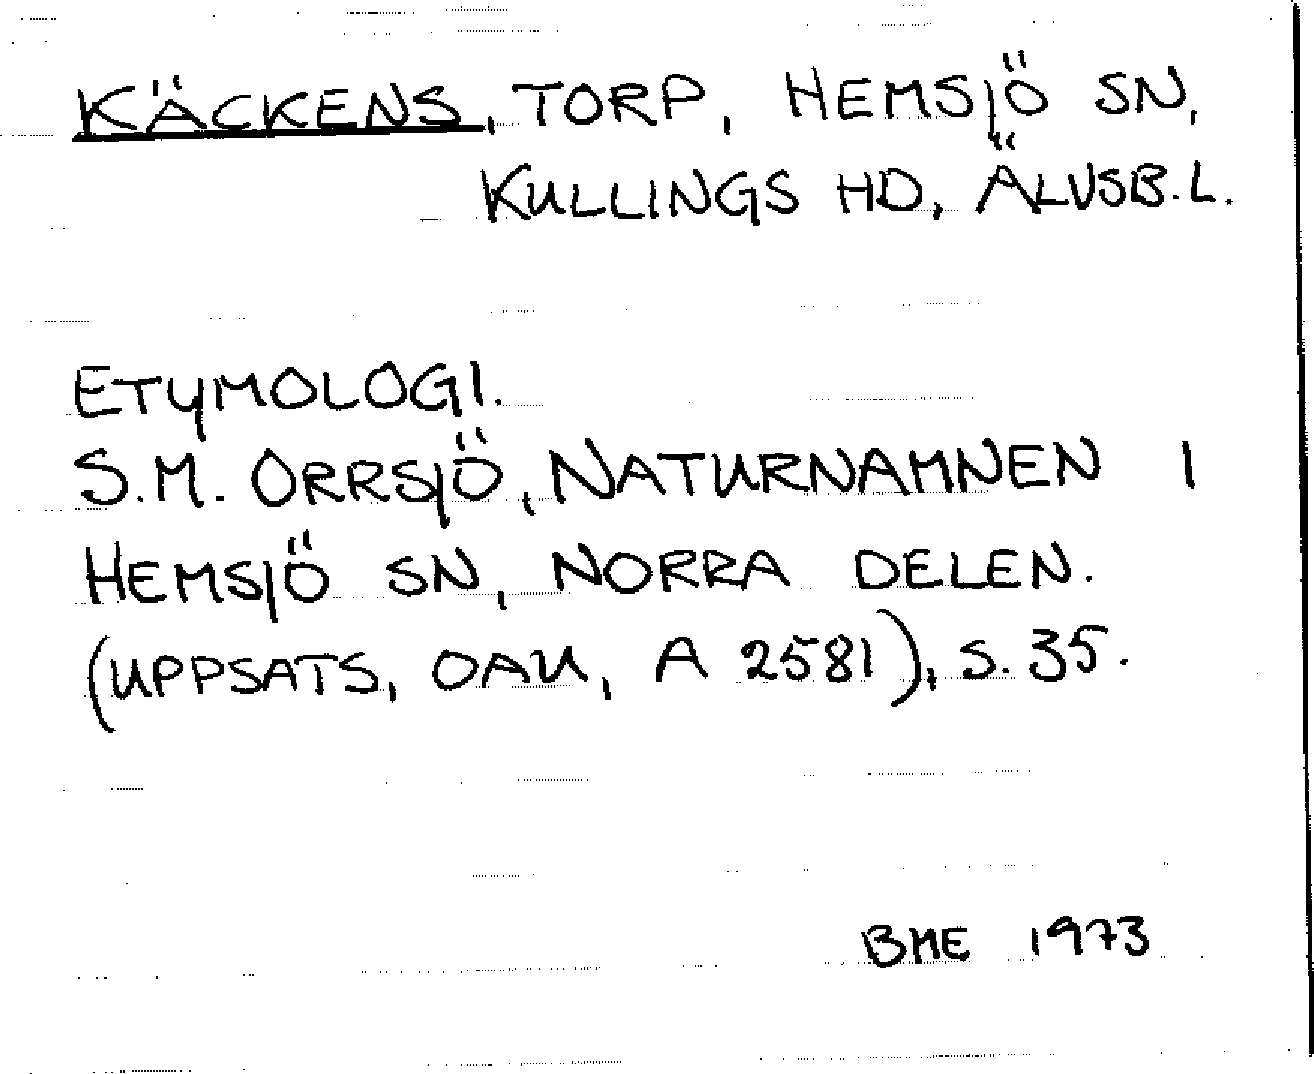 KÄCKENS, TORP, HEMSJÖ SN,
KULLINGS HD, ÄLVSB.L.
ETYMOLOGI.
S.M. ORRSJÖ, NATURNAMNEN I
HEMSJÖ SN, NORRA DELEN.
(UPPSATS, OAU, A 2581), S. 35.
BME 1973